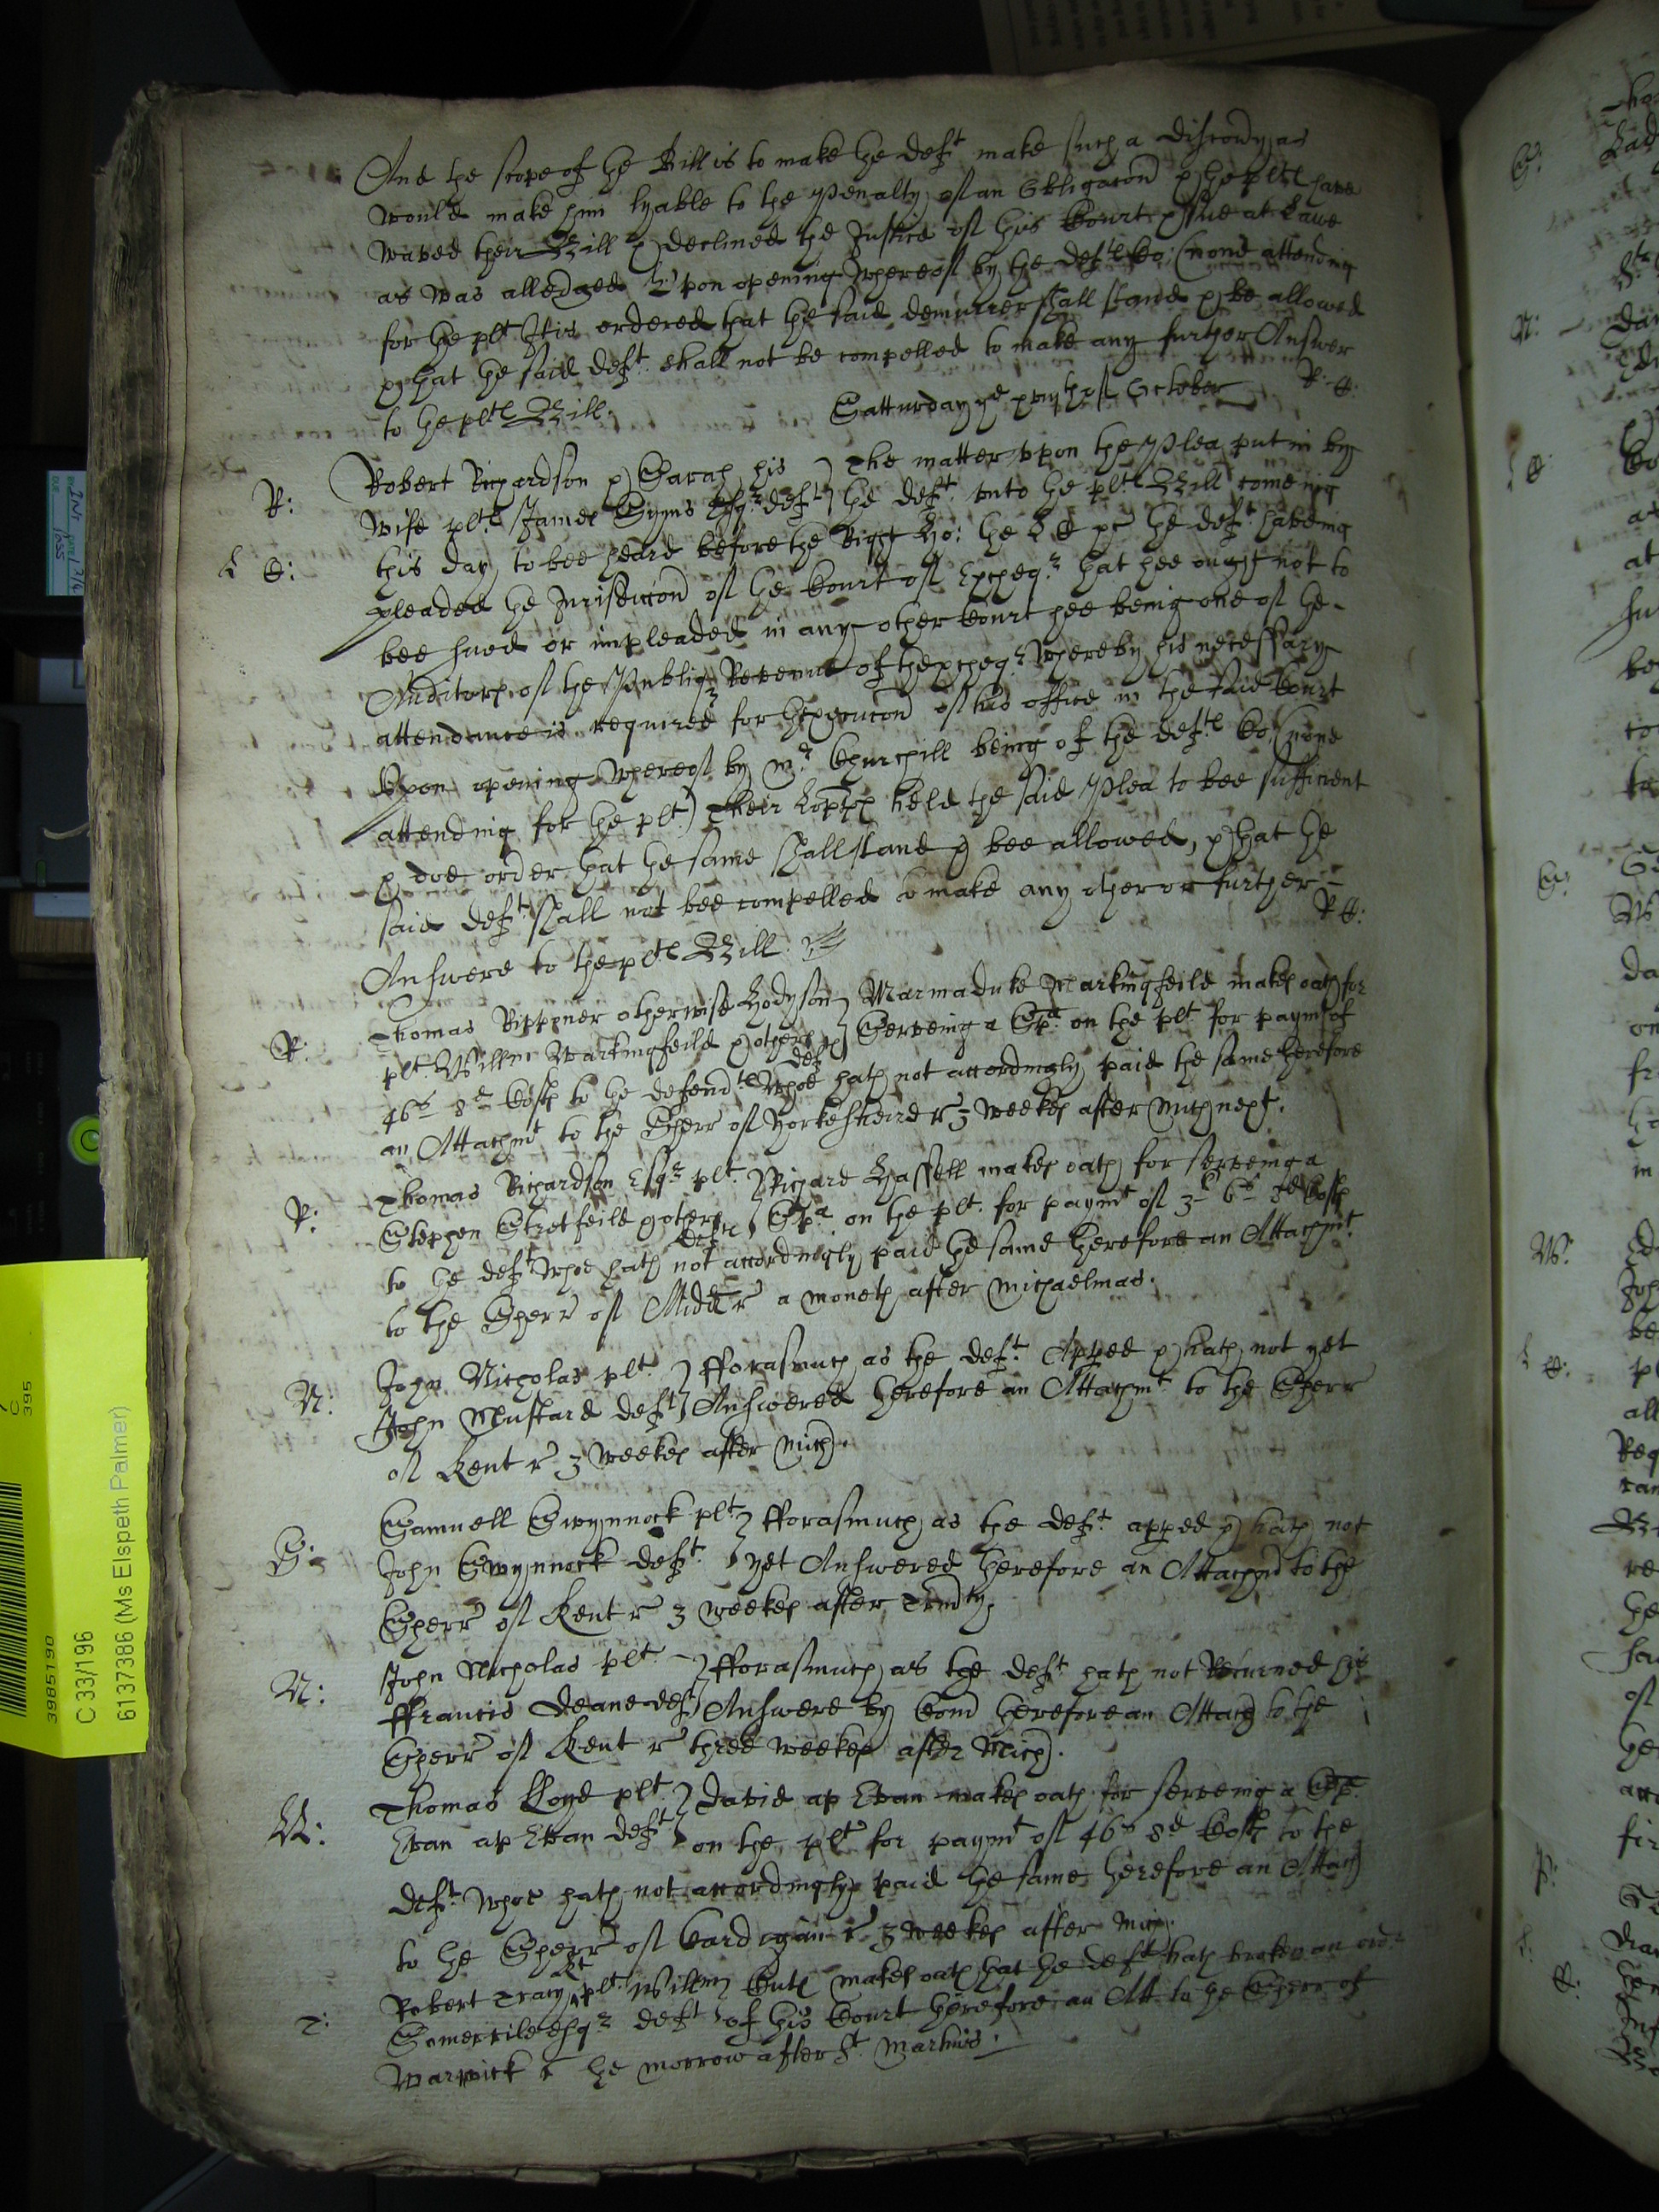 And the scope of the Bill is to make the deft make such a discovry as
would make him lyable to the Penalty of an Obligacon & the plts have
waved their Bill & declined the Justice of this Court & sue at Lawe
as was alledged Upon opening whereof by the defts Co: (none attending
for the plt It is ordered that the said demurrer shall stand & be allowed
& that the said deft shall not be compelled to make any further Answer
to the plts Bill.
R: C:
Satturday ye of October
R: Robert Richardson & Sarah his } The matter upon the Plea put in by
wife plts James Esqr deft } the deft unto the plts Bill comeing
L C: this day to bee heard before the Right Ho: the L C the deft haveing
pleaded the Jurisdiccon of the Court of Excheqr that hee ought not to
bee sued or impleaded in any other Court hee being one of the
Auditors of the Publiq Revenue of thexcheqr whereby his necessary
attendance is required for thexecucon of his office in the said Court
Upon opening whereof by mr Churchill being of the defts Co: (none
attending for the plt) Their Lopps held the said Plea to bee sufficient
& doe order that the same shall stand & bee allowed, & that the
said deft shall not bee compelled to make any other or further
Answere to the plts Bill.
R C:
R: Thomas Rippner otherwise Hodgson } Marmaduke Markingfeild makes oath for
plt. Willm Markingfeild & others defts } Serveing a Spa on the plt for paymt of
46s 8d Costs to the defendts whoe hath not accordingly paid the same therefore
an Attachmt to the Sherr of Yorkesheire r 3 weekes after Mich next.
R: Thomas Richardson Esqr plt. } Richard Hassell makes oath for serveing a
Stephen Stretfeild & others defts } Spa on the plt. for paymt of 3l 6s 8d Costs
to the deft whoe hath not accordingly paid the same therefore an Attachmt
to the Sherr of Midd r a moneth after Michaelmas.
N: John Nicholas plt. } fforasmuch as the deft. Apped & hath not yet
John Mustard deft } Answered therefore an Attachmt to the Sherr
of Kent r 3 weekes after Mich.
S: Samuell Swynnock plt } fforasmuch as the deft. apped & hath not
John Swynnock deft. } yet Answered therefore an Attachmt to the
Sherr of Kent r 3 weekes after Trinity.
N: John Nicholas plt. } fforasmuch as the deft hath not Returned his
ffrancis Deane deft } Answere by Com therefore an Attach to the
Sherr of Kent r three weekes after Mich.
Ll: Thomas Lloyd plt. } David ap Evan makes oath for serveing a Spa
Evan ap Evan deft } on the plt for paymt of 46s 8d Costs to the
deft. whoe hath not accordingly paid the same therefore an Attach
to the Sherr of Cardigan r 3 weekes after Mich.
T: Robert Tracy Kt plt. Willm } makes oath that the deft hath broken an ordr
Somervile Esqr deft } of this Court therefore an Att to the Sherr of
Warwick r the morrow after St Martins.
3985190
C 33/196
6137386 (Ms Elspeth Palmer)